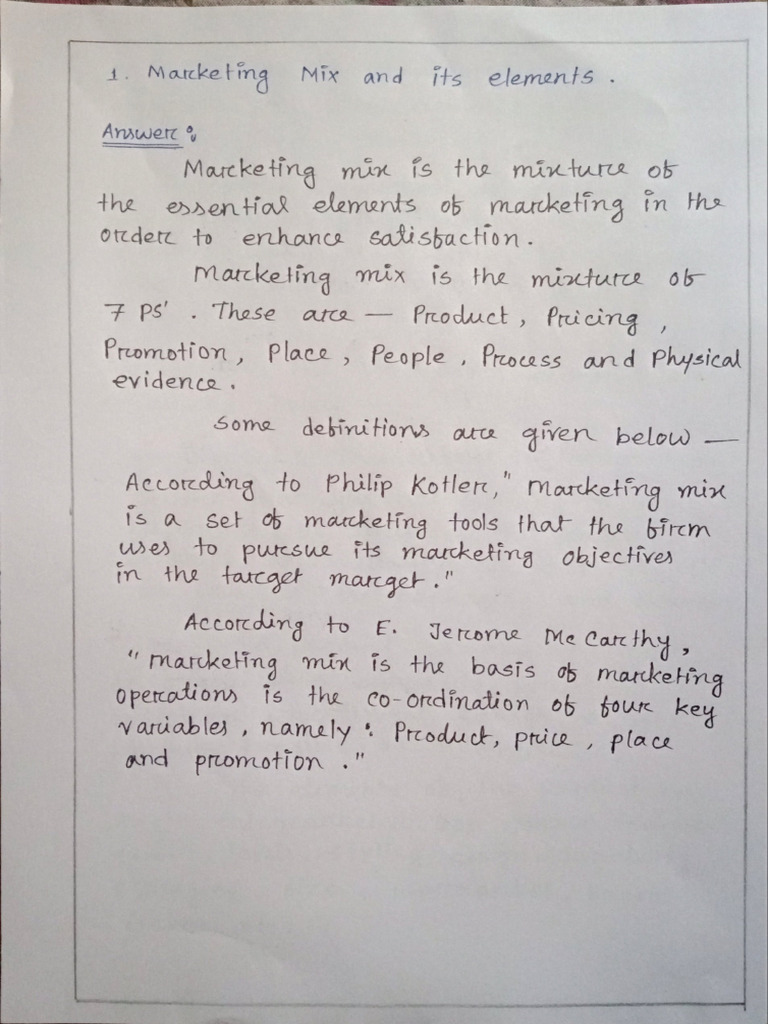 1. Marketing Mix and its elements.
Answer:
Marketing mix is the mixture of
the essential elements of marketing in the
order to enhance satisfaction.
Marketing mix is the mixture of
7 PS'. These are — Product, Pricing,
Promotion, Place, People, Process and Physical
evidence.
Some definitions are given below —
According to Philip Kotler, "Marketing mix
is a set of marketing tools that the firm
uses to pursue its marketing objectives
in the target marget."
According to E. Jerome Mc Carthy,
"Marketing mix is the basis of marketing
operations is the co-ordination of four key
variables, namely: Product, price, place
and promotion."